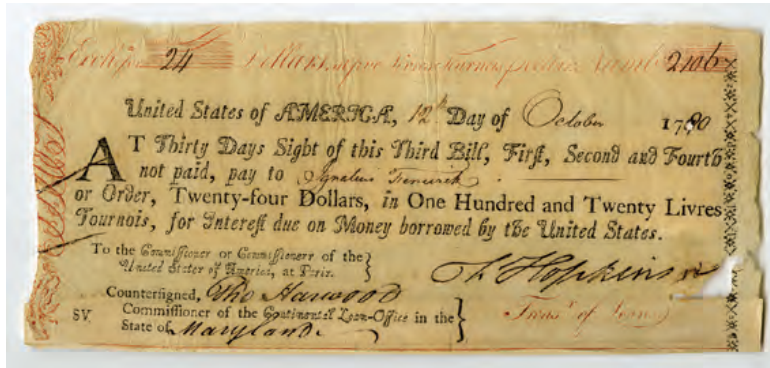 Exch. for 24 Dollars, at five Livres Tournois per dollar Number 2106
United States of AMERICA, 12th Day of October 1780
AT Thirty Days Sight of this Third Bill, First, Second and Fourth
not paid, pay to Ignatius Fenwick
or Order, Twenty-four Dollars, in One Hundred and Twenty Livres
Tournois, for Interest due on Money borrowed by the United States.
To the Commissioner or Commissioners of the
United States of America, at Paris.
Hopkinson
Countersigned, Tho Harwood
SV. Commissioner of the Continental Loan-Office in the
State of Maryland.
Treasr of Loans